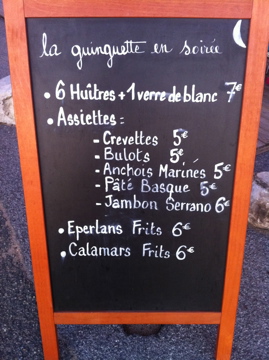 la guinguette en soirée
• 6 Huîtres + 1 verre de blanc 7€
• Assiettes :
- Crevettes 5€
- Bulots 5€
- Anchois Marinés 5€
- Pâté Basque 5€
- Jambon Serrano 6€
• Eperlans Frits 6€
• Calamars Frits 6€